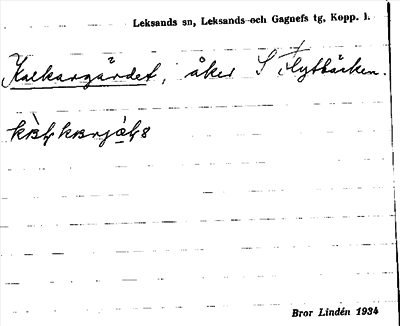 Leksands sn, Leksands och Gagnefs tg, Kopp. l.
Kalkargärdet, åker S Flytbäcken.
Bror Lindén 1934